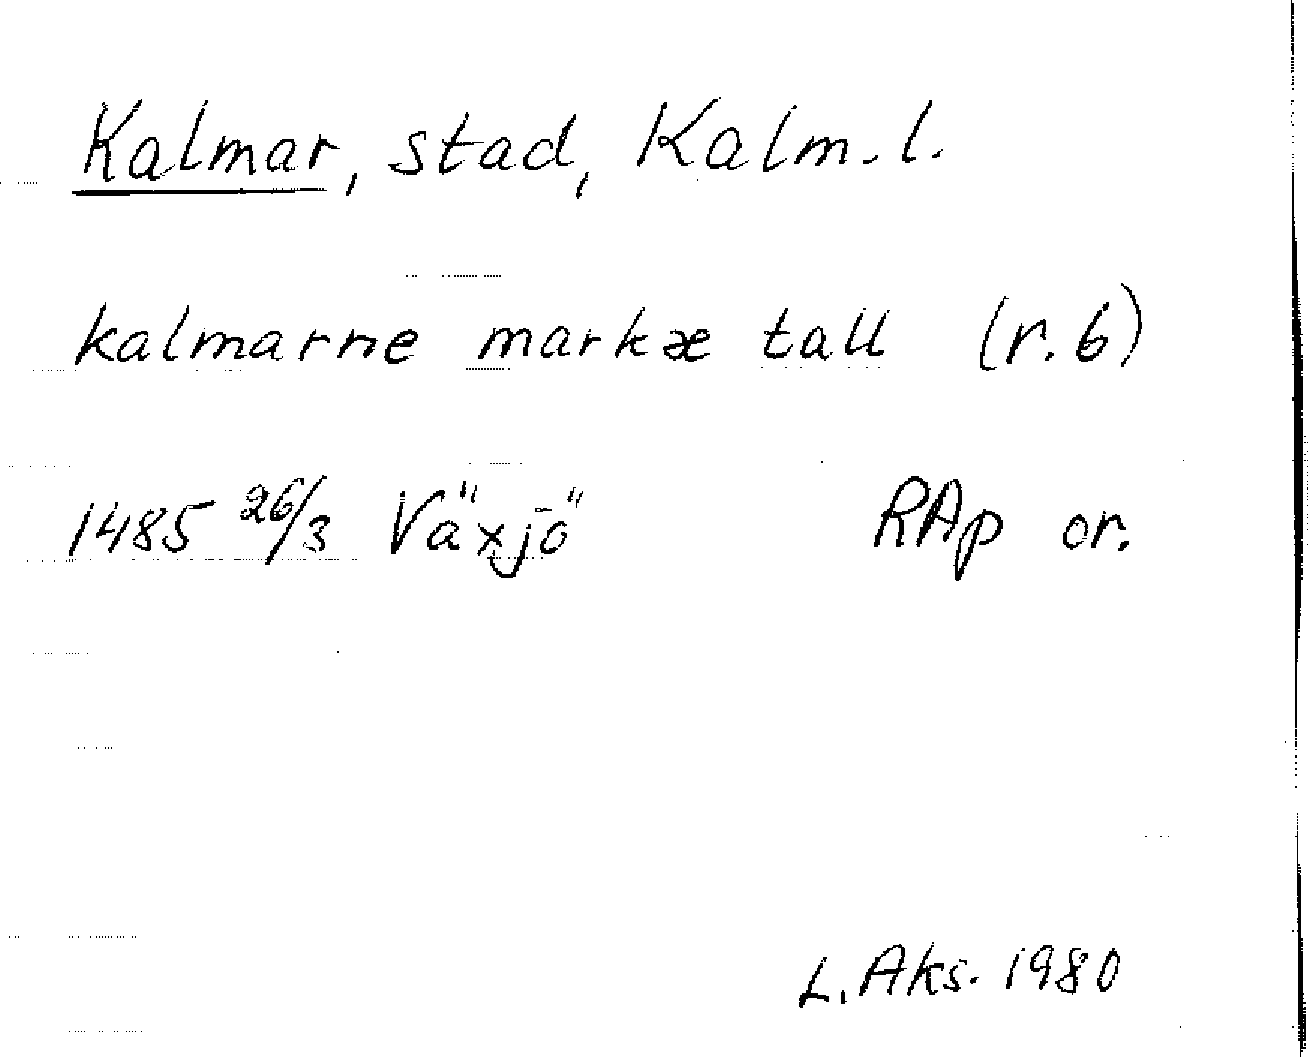 Kalmar, stad, Kalm. l.
kalmarne markæ tall (r. 6)
1485 26/3 Växjö RAp or.
L. Aks. 1980